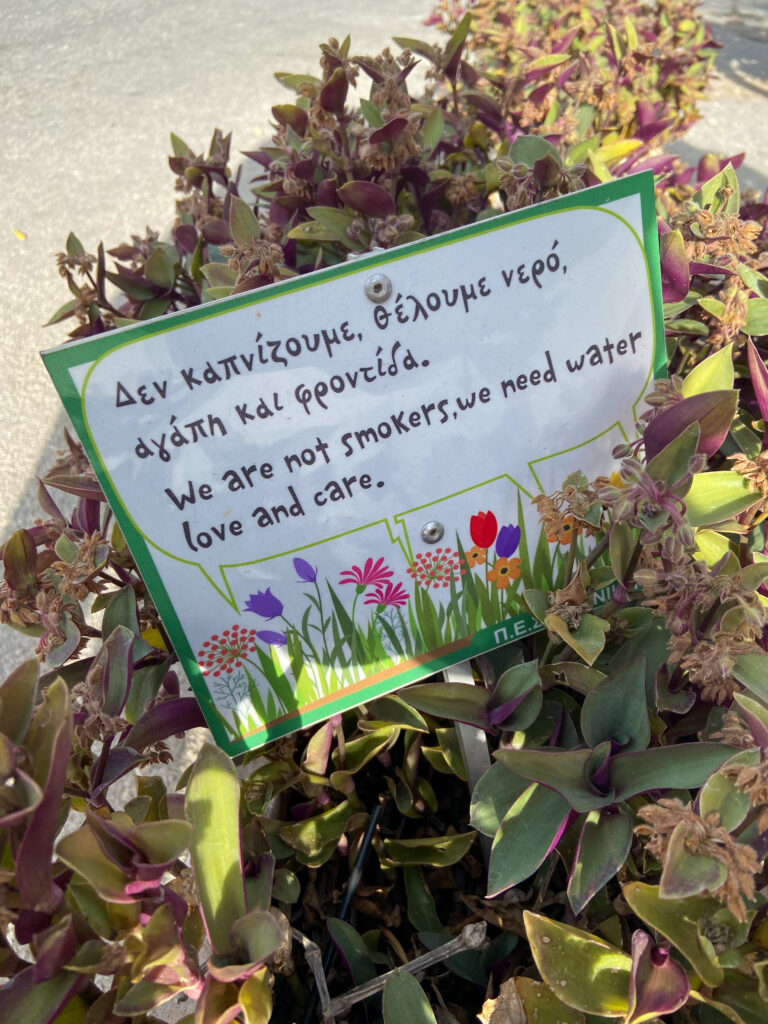 Δεν καπνίζουμε, θέλουμε νερό,
αγάπη και φροντίδα.
We are not smokers,we need water
love and care.